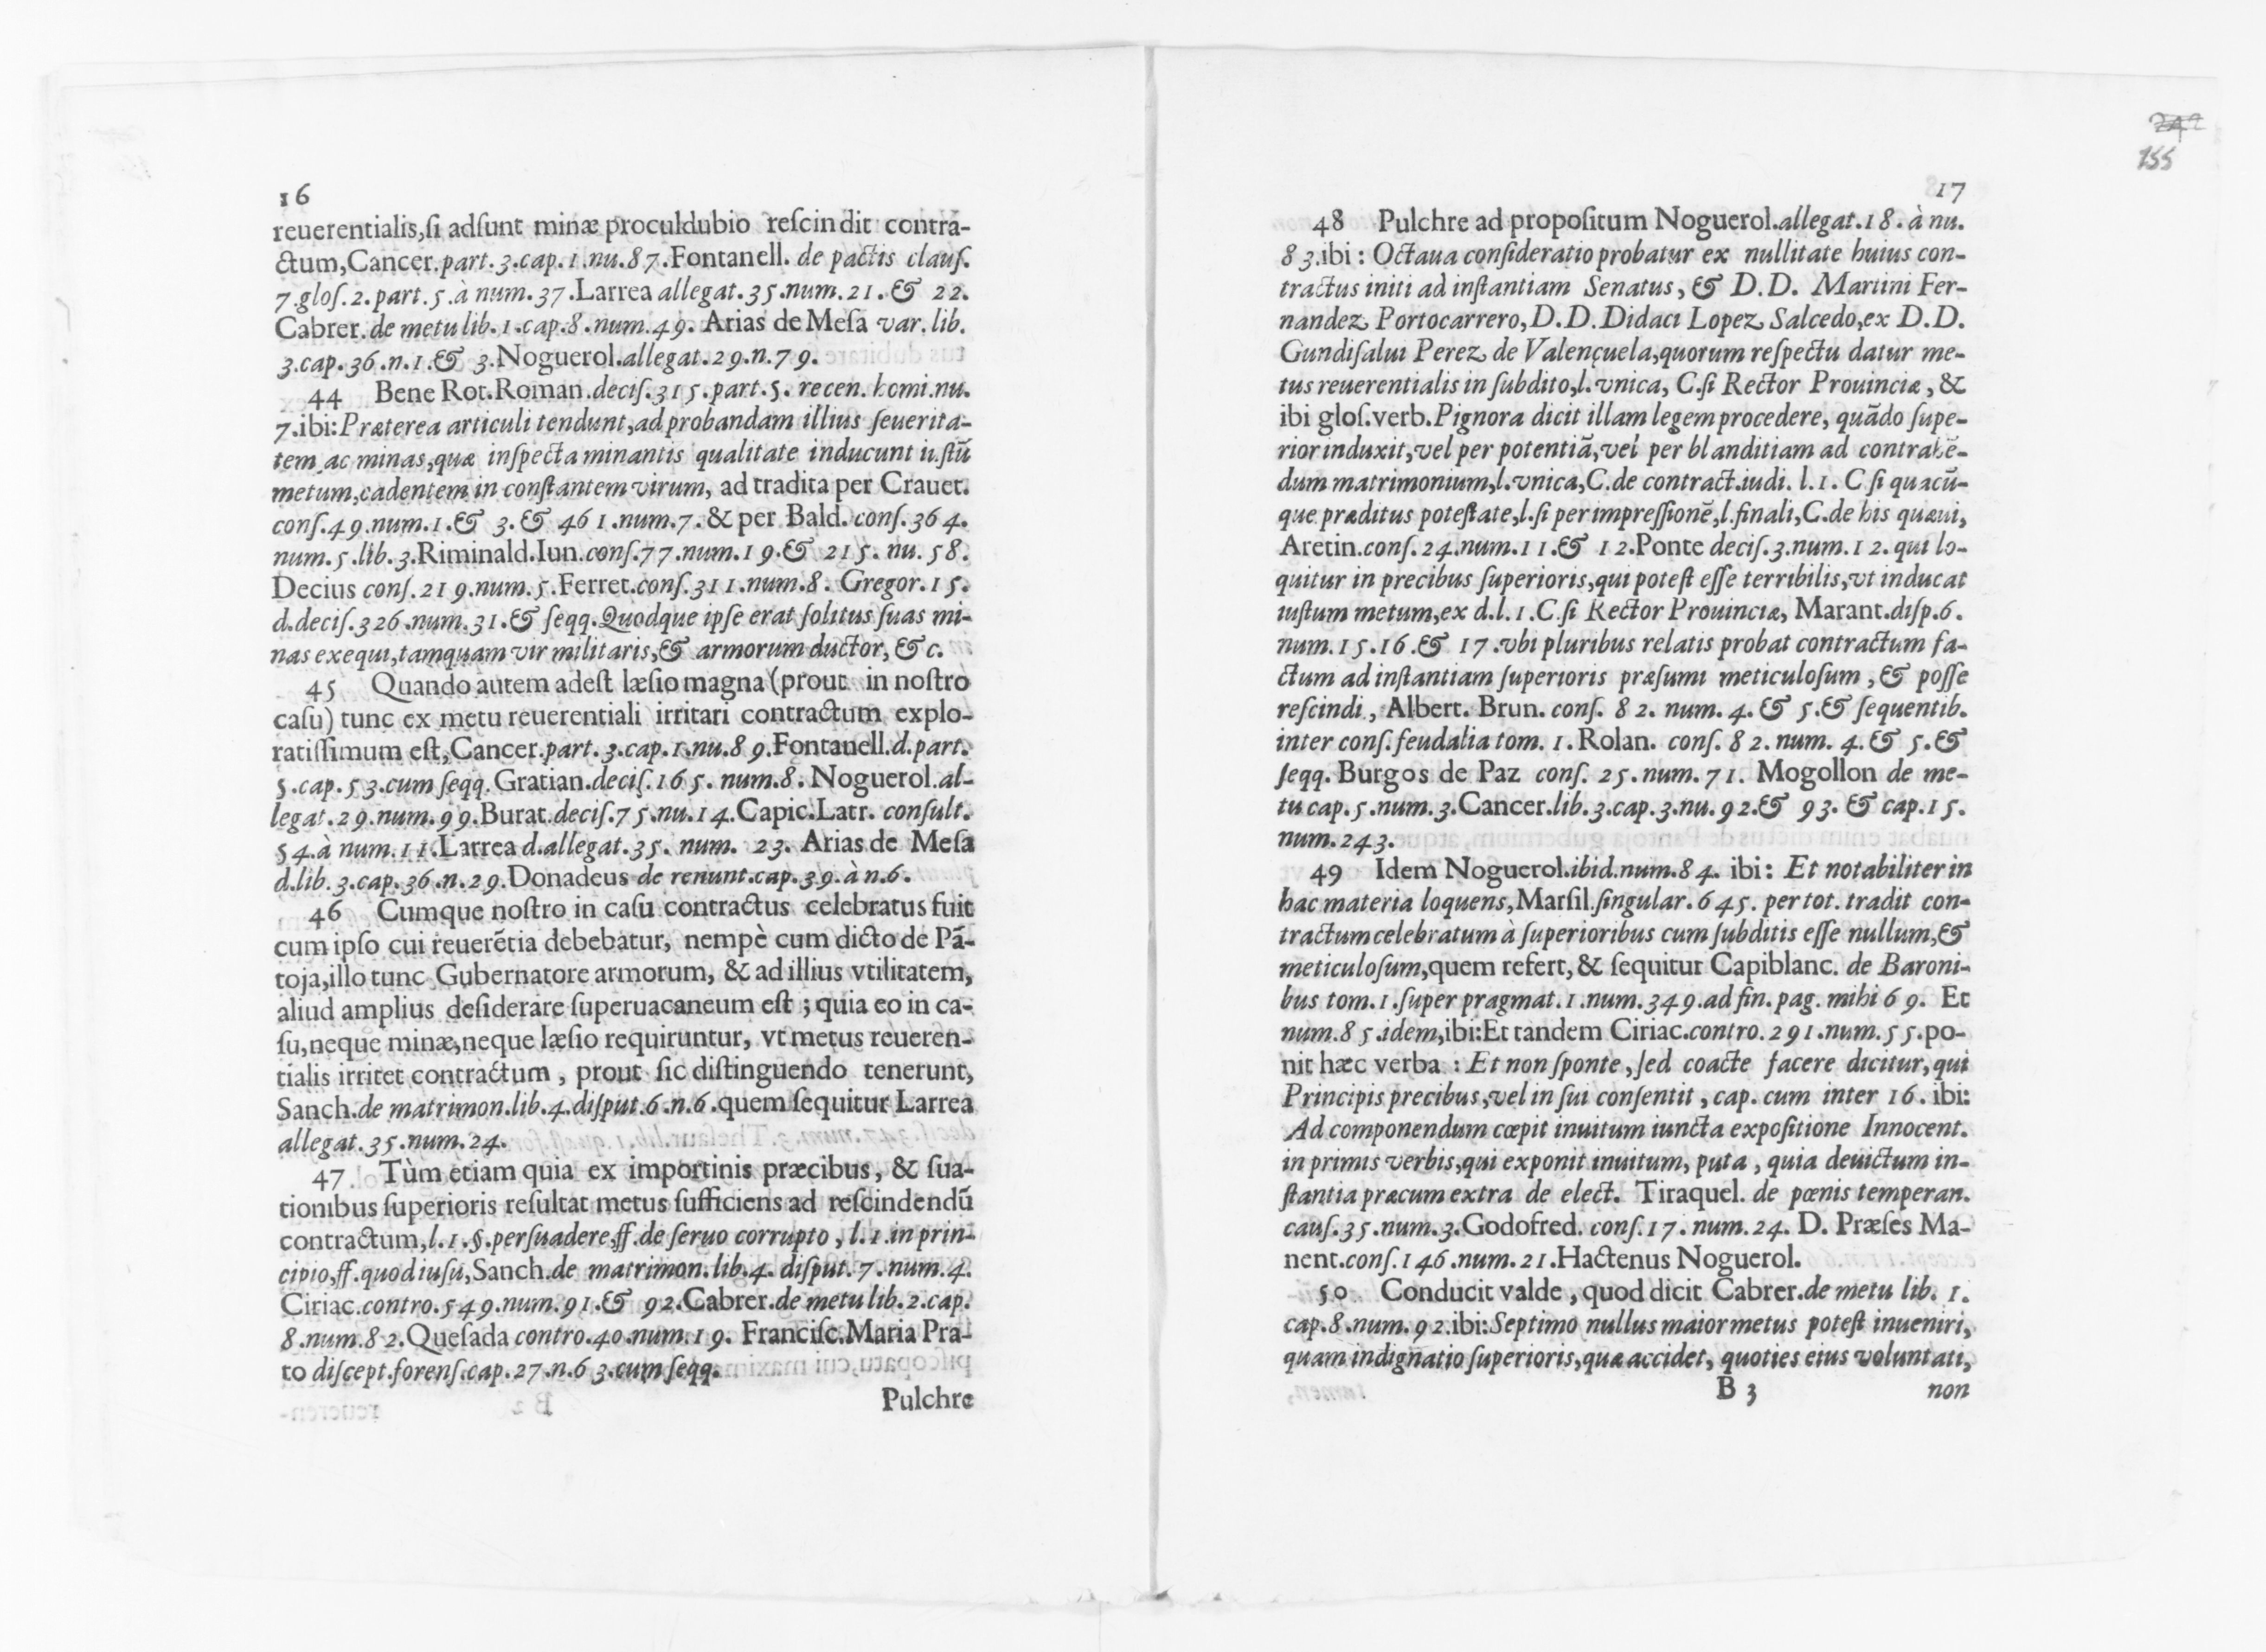 16
reuerentialis,si adsunt minæ proculdubio rescindit contra-
ctum,Cancer.part.3.cap.1.nu.87.Fontanell. de pactis claus.
7.glos.2.part.5.à num.37.Larrea allegat.35.num.21.& 22.
Cabrer.de metu lib.1.cap.8.num.49. Arias de Mesa var. lib.
3.cap.36.n.1.& 3.Noguerol.allegat.29.n.79.
44 Bene Rot.Roman.decis.315.part.5. recen. homi.nu.
7.ibi:Præterea articuli tendunt,ad probandam illius seuerita-
tem ac minas,quæ inspecta minantis qualitate inducunt iustũ
metum,cadentem in constantem virum, ad tradita per Crauet.
cons.49.num.1.& 3.& 461.num.7.& per Bald. cons.364.
num.5.lib.3.Riminald.Iun.cons.77.num.19.& 215. nu. 58.
Decius cons.219.num.5.Ferret.cons.311.num.8. Gregor.15.
d.decis.326.num.31.& seqq.Quodque ipse erat solitus suas mi-
nas exequi,tamquam vir militaris,& armorum ductor, &c.
45 Quando autem adest læsio magna (prout in nostro
casu) tunc ex metu reuerentiali irritari contractum explo-
ratissimum est,Cancer.part.3.cap.1.nu.89.Fontanell.d.part.
5.cap.53.cum seqq.Gratian.decis.165. num.8. Noguerol.al-
legat.29.num.99.Burat.decis.75.nu.14.Capic.Latr. consult.
54.à num.11.Larrea d.allegat.35. num. 23. Arias de Mesa
d.lib.3.cap.36.n.29.Donadeus de renunt.cap.39.à n.6.
46 Cumque nostro in casu contractus celebratus fuit
cum ipso cui reuerẽtia debebatur, nempè cum dicto de Pã-
toja,illo tunc Gubernatore armorum, & ad illius vtilitatem,
aliud amplius desiderare superuacaneum est ; quia eo in ca-
su,neque minæ,neque læsio requiruntur, vt metus reueren-
tialis irritet contractum , prout sic distinguendo tenerunt,
Sanch.de matrimon.lib.4.disput.6.n.6.quem sequitur Larrea
allegat.35.num.24.
47 Tùm etiam quia ex importinis præcibus, & sua-
tionibus superioris resultat metus sufficiens ad rescindendũ
contractum,l.1.§.persuadere,ff.de seruo corrupto , l.1.in prin-
cipio,ff.quod iusu,Sanch.de matrimon.lib.4. disput.7.num.4.
Ciriac.contro.549.num.91.& 92.Cabrer.de metu lib.2.cap.
8.num.82.Quesada contro.40.num.19. Francisc.Maria Pra-
to discept.forens.cap.27.n.63.cum seqq.
Pulchre
155
17
48 Pulchre ad propositum Noguerol.allegat.18.à nu.
83.ibi : Octaua consideratio probatur ex nullitate huius con-
tractus initi ad instantiam Senatus, & D.D. Martini Fer-
nandez Portocarrero,D.D.Didaci Lopez Salcedo,ex D.D.
Gundisalui Perez de Valençuela,quorum respectu datur me-
tus reuerentialis in subdito,l.vnica, C.si Rector Prouinciæ, &
ibi glos.verb.Pignora dicit illam legem procedere, quãdo supe-
rior induxit,vel per potentiã,vel per blanditiam ad contrahẽ-
dum matrimonium,l.vnica,C.de contract.iudi. l.1. C si quacũ-
que præditus potestate,l.si per impressionẽ,l.finali,C.de his quæ ui,
Aretin.cons.24.num.11.& 12.Ponte decis.3.num.12. qui lo-
quitur in precibus superioris,qui potest esse terribilis,vt inducat
iustum metum,ex d.l.1.C.si Rector Prouinciæ, Marant.disp.6.
num.15.16.& 17.vbi pluribus relatis probat contractum fa-
ctum ad instantiam superioris præsumi meticulosum , & posse
rescindi , Albert. Brun. cons. 82. num. 4.& 5.& sequentib.
inter cons.feudalia tom. 1. Rolan. cons. 82. num. 4.& 5.&
seqq. Burgos de Paz cons. 25.num.71. Mogollon de me-
tu cap.5.num.3.Cancer.lib.3.cap.3.nu.92.& 93. & cap.15.
num.243.
49 Idem Noguerol.ibid.num.84. ibi : Et notabiliter in
hac materia loquens,Marsil.singular.645. per tot. tradit con-
tractum celebratum à superioribus cum subditis esse nullum,&
meticulosum,quem refert,& sequitur Capiblanc. de Baroni-
bus tom.1.super pragmat.1.num.349.ad fin. pag. mihi 69. Et
num.85.idem,ibi:Et tandem Ciriac.contro.291.num.55.po-
nit hæc verba : Et non sponte , sed coacte facere dicitur,qui
Principis precibus,vel in sui consentit , cap. cum inter 16. ibi:
Ad componendum cœpit inuitum iuncta expositione Innocent.
in primis verbis,qui exponit inuitum, puta , quia deuictum in-
stantia præcum extra de elect. Tiraquel. de pœnis temperan.
caus.35.num.3.Godofred. cons.17.num.24. D. Præses Ma-
nent.cons.146.num.21.Hactenus Noguerol.
50 Conducit valde , quod dicit Cabrer.de metu lib. 1.
cap.8.num.92.ibi:Septimo nullus maior metus potest inueniri,
quam indignatio superioris,quæ accidet, quoties eius voluntati,
B 3 non